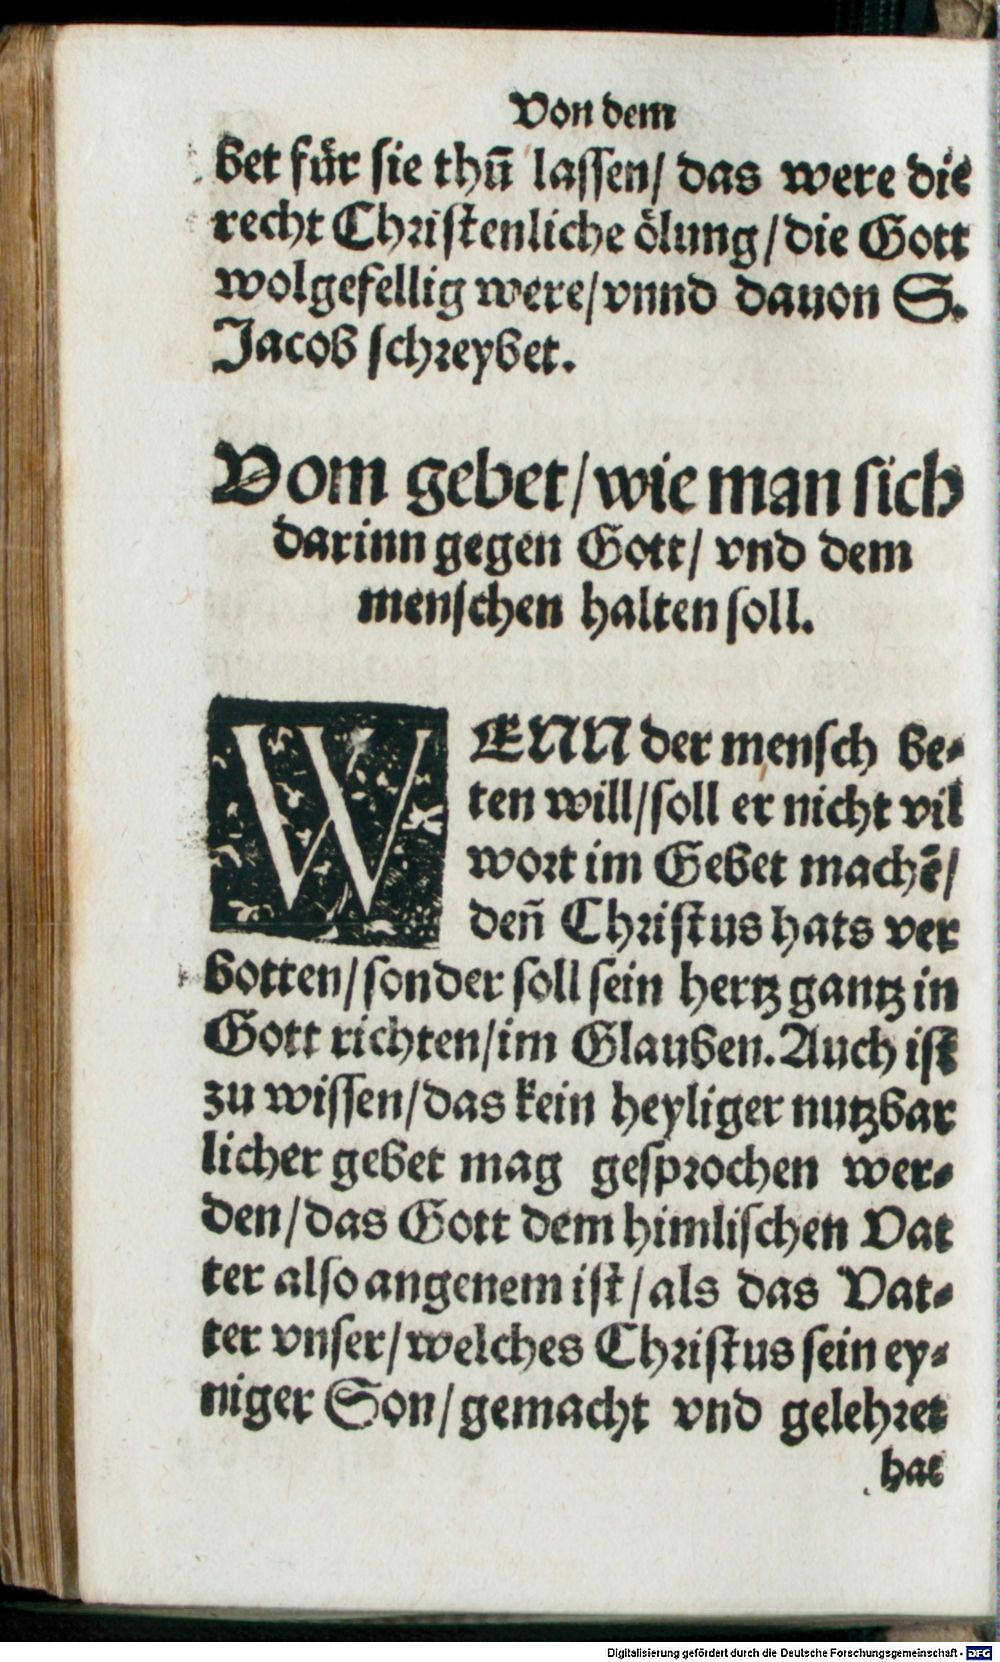 Von dem
bet für sie thũ lassen/ das were die
recht Christenliche ölung/die Gott
wolgefellig were/vnnd dauon S.
Jacob schreybet.
Vom gebet/wie man sich
darinn gegen Gott/ vnd dem
menschen halten soll.
WENN der mensch be-
ten will/soll er nicht vil
wort im Gebet machẽ/
deñ Christus hats ver
botten/sonder soll sein hertz gantz in
Gott richten/im Glauben. Auch ist
zu wissen/das kein heyliger nutzbar
licher gebet mag gesprochen wer-
den/das Gott dem himlischen Vat
ter also angenem ist/als das Vat-
ter vnser/welches Christus sein ey-
niger Son/gemacht vnd gelehret
hat
Digitalisierung gefördert durch die Deutsche Forschungsgemeinschaft - DFG